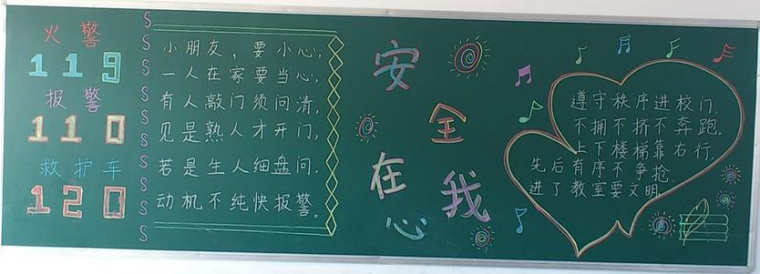 火警
119
报警
110
救护车
120
小朋友，要小心，
一人在家要当心，
有人敲门须问清，
见是熟人才开门，
若是生人细盘问，
动机不纯快报警。
安全在我心
遵守秩序进校门，
不拥不挤不奔跑。
上下楼梯靠右行，
先后有序不争抢。
进了教室要文明。